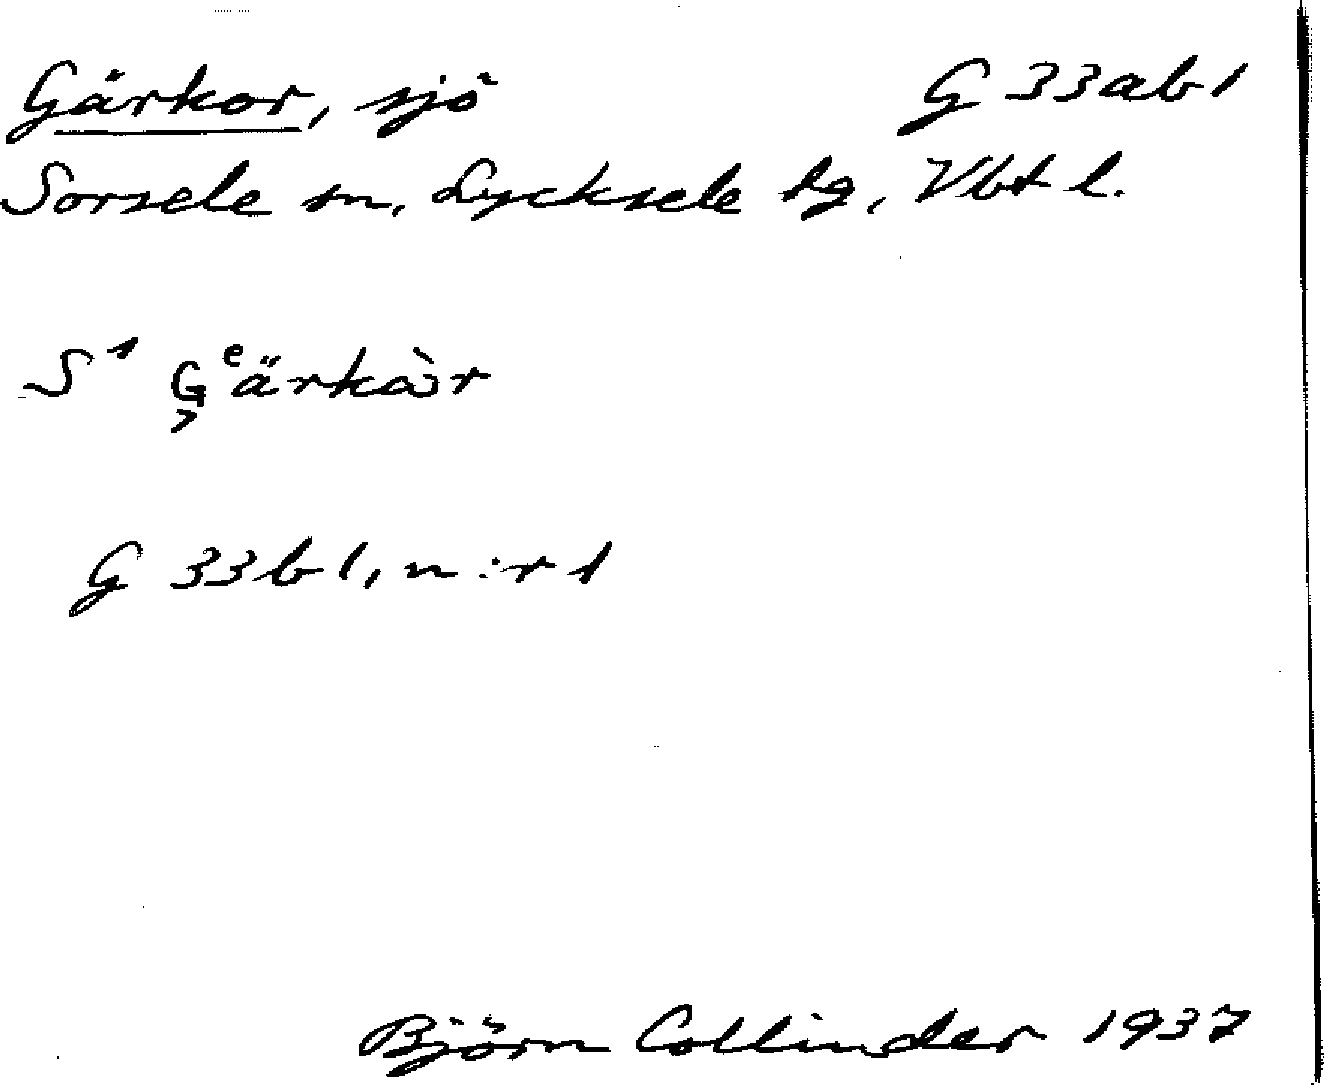 Gärkor, sjö G 33ab1
Sorsele sn, Lycksele tg, Vbt l.
S¹ G̦ᵉärkàr
G 33b1, n:r 1
Björn Collinder 1937